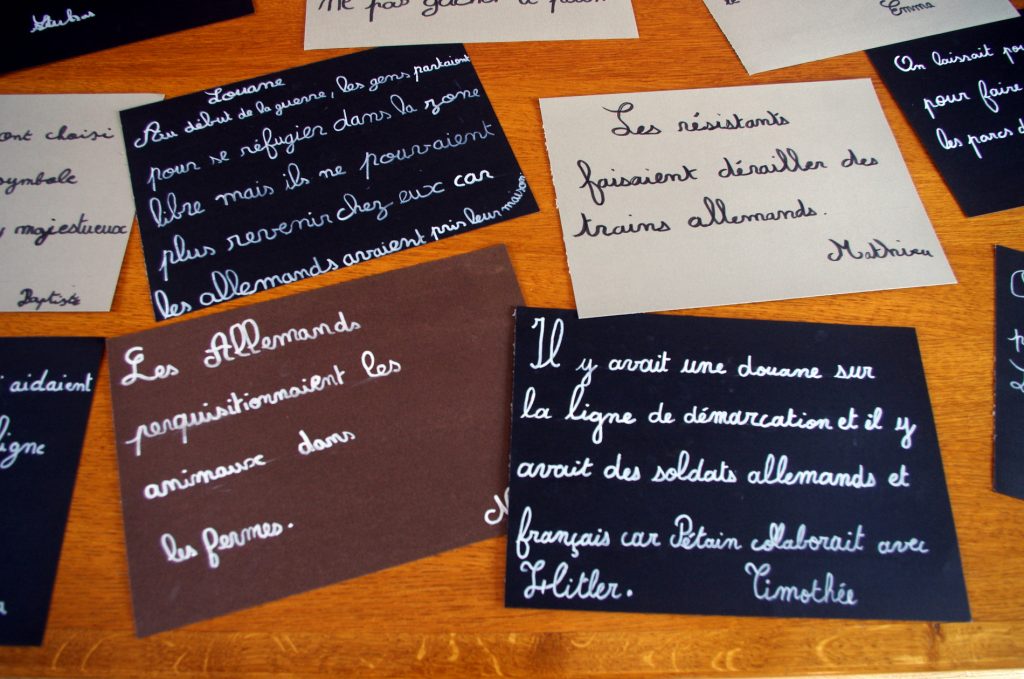 ne pas gâcher le pain
Emma
On laissait
pour faire
les parcs d
ont choisi
symbole
majestueux
Baptiste
Louane
Au début de la guerre, les gens partaient
pour se réfugier dans la zone
libre mais ils ne pouvaient
plus revenir chez eux car
les allemands avaient pris leur maison
Les résistants
faisaient dérailler des
trains allemands.
Mathieu
i aidaient
ligne
Les Allemands
perquisitionnaient les
animaux dans
les fermes.
Il y avait une douane sur
la ligne de démarcation et il y
avait des soldats allemands et
français car Pétain collaborait avec
Hitler. Timothée